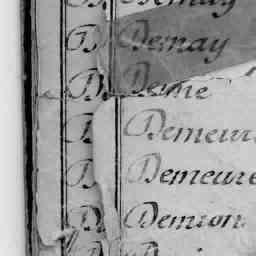 D. Demay
D. Demay
D. Deme
D Demeur
D Demeure
D. Demion
D